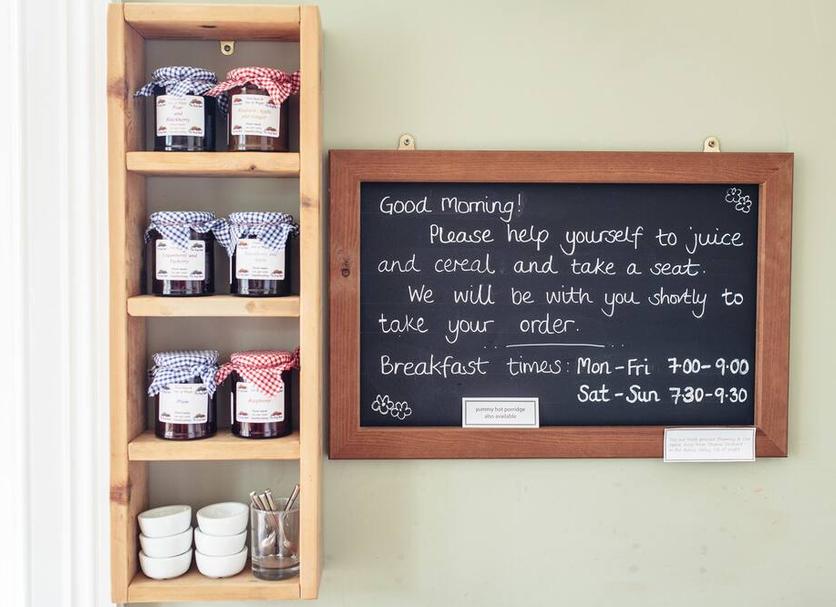 Pear
and
Blackberry
Rhubarb, Apple
and Ginger
Plum
Raspberry
Good Morning!
Please help yourself to juice
and cereal and take a seat.
We will be with you shortly to
take your order.
Breakfast times: Mon-Fri 7.00-9.00
Sat-Sun 7.30-9.30
yummy hot porridge
also available